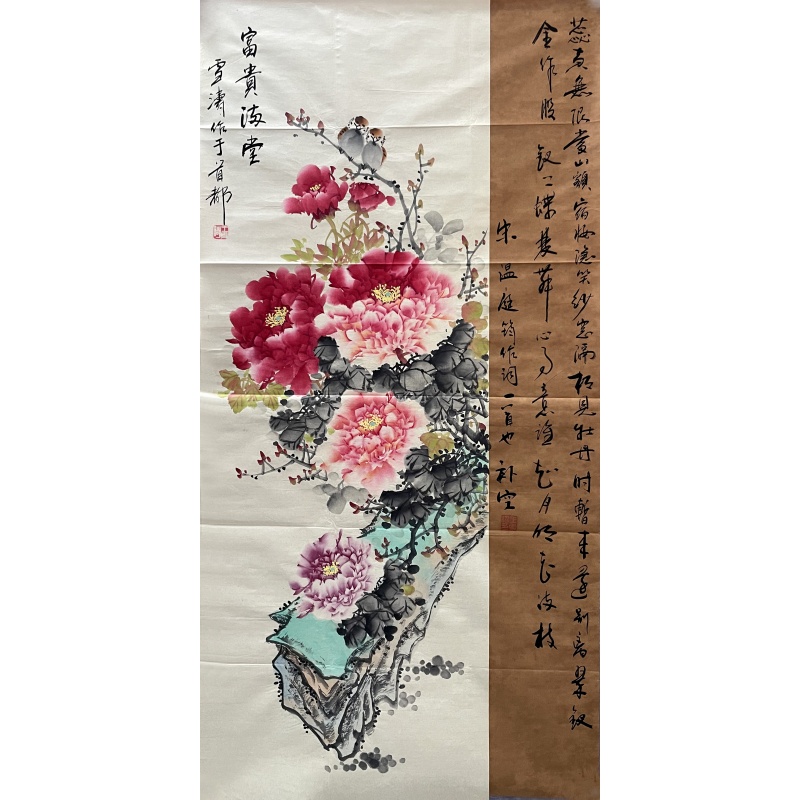 蕊黃無限當山額宿妝隱笑紗窗隔相見牡丹時暫來還別離翠釵
金作股釵上蝶雙舞心事竟誰知月明花滿枝
宋温庭筠作詞一首也補空
富貴滿堂
雪濤作于首都